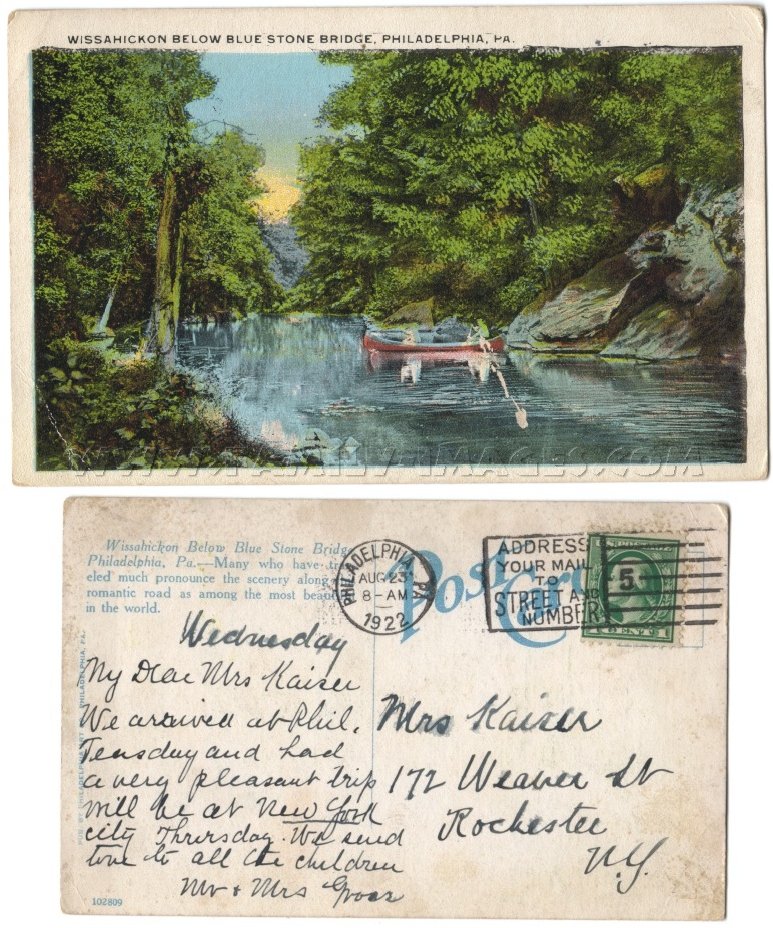 WISSAHICKON BELOW BLUE STONE BRIDGE, PHILADELPHIA, PA.
WWW.FAMILY-IMAGES.COM
Wissahickon Below Blue Stone Bridge
Philadelphia, Pa.—Many who have trav
eled much pronounce the scenery along
romantic road as among the most beau
in the world.
PHILADELPHIA PA
AUG 23
8-AM
1922
Post Card
ADDRESS
YOUR MAIL
TO
STREET AND
NUMBER
5
1 CENT 1
Wednesday
My Dear Mrs Kaiser
We arrived at Phil.
Teusday and had
a very pleasant trip
will be at New York
city Thrursday. We send
love to all the children
Mr + Mrs
Mrs Kaiser
172 Weaver St
Rochester
N.Y.
PUB. BY PHILADELPHIA PHILADELPHIA, PA.
102809